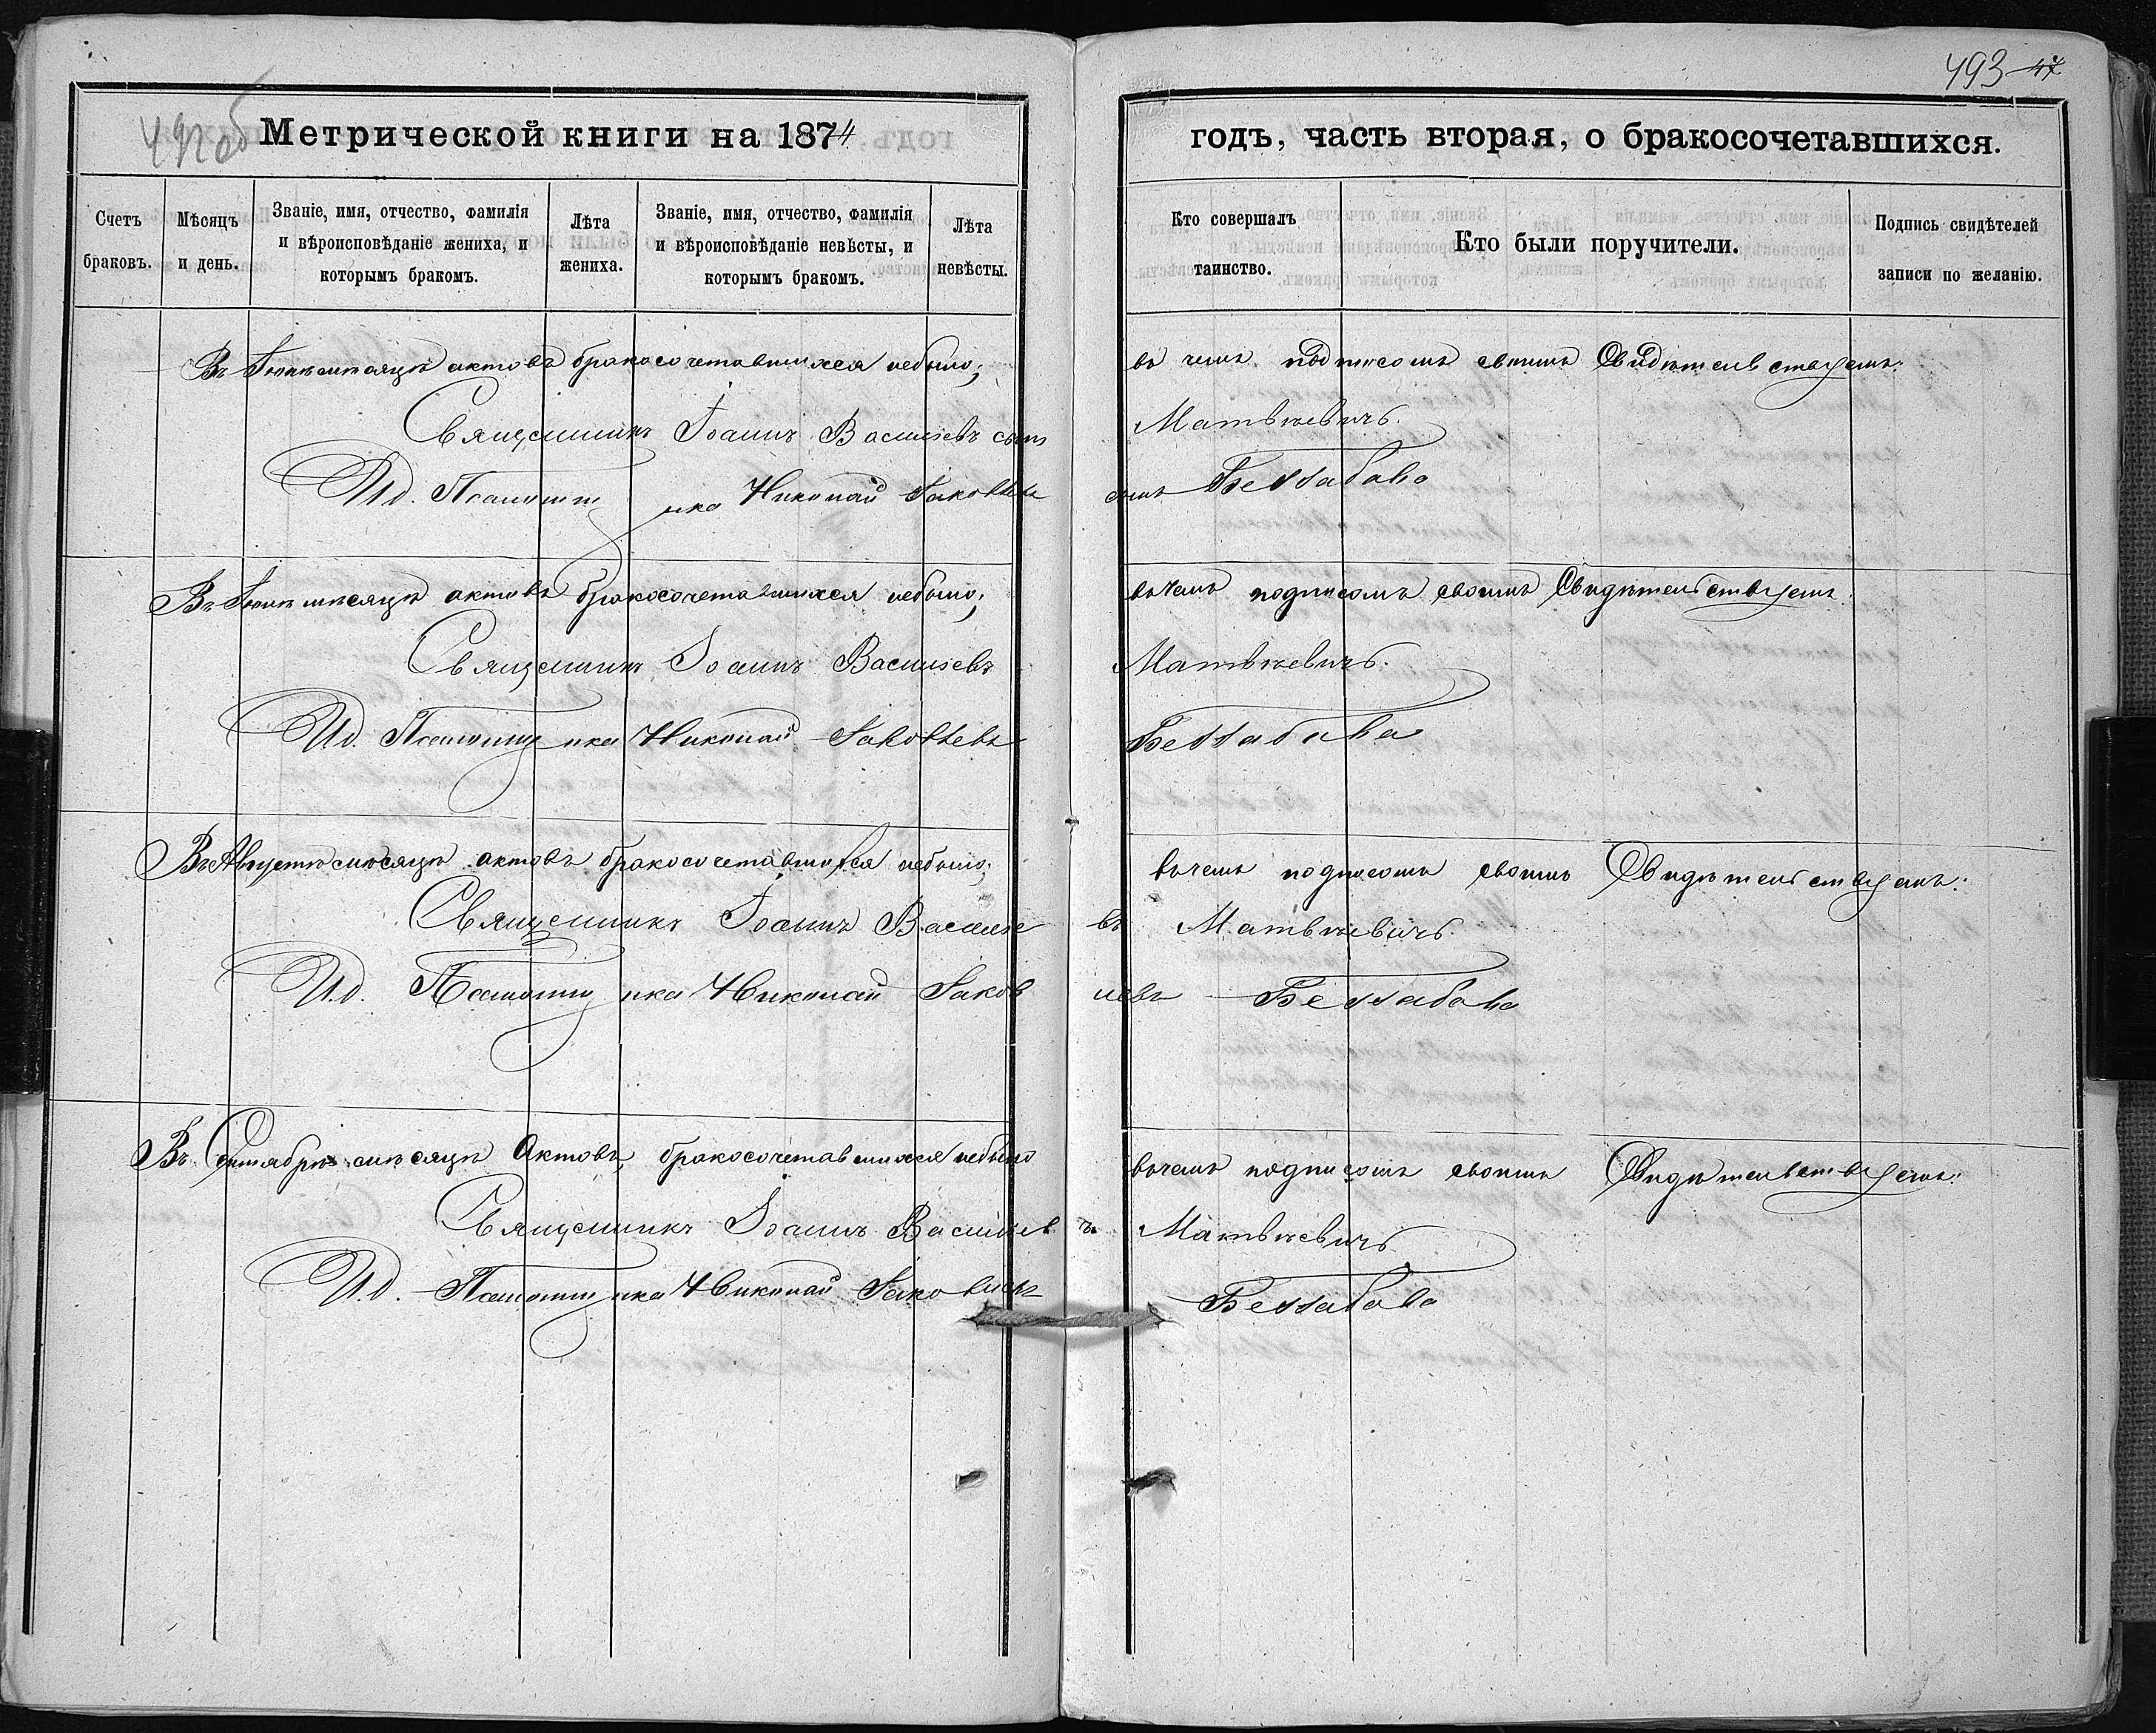 492об
Метрической книги на 1874
Счетъ браковъ.
Мѣсяцъ и день.
Званіе, имя, отчество, фамилія и вѣроисповѣданіе жениха, и которымъ бракомъ.
Лѣта жениха.
Званіе, имя, отчество, фамилія и вѣроисповѣданіе невѣсты, и которымъ бракомъ.
Лѣта невѣсты.
Въ Іюнѣ мѣсяцѣ актовъ бракосочетавшихся небыло;
Священникъ Іоаннъ Васильевъ сынъ
И.д. Псаломщика Николай Яковлевъ
Въ Іюлѣ мѣсяцѣ актовъ бракосочетавшихся небыло;
Священникъ Іоаннъ Васильевъ
И.д. Псаломщика Николай Яковлевъ
Въ Августѣ мѣсяцѣ актовъ бракосочетавшихся небыло;
Священникъ Іоаннъ Василье
И.д. Псаломщика Николай Яков
Въ Сентябрѣ мѣсяцѣ Актовъ, бракосочетавшихся небыло
Священникъ Іоаннъ Васильев
И.д. Псаломщика Николай Яковлевъ
493 47
годъ, часть вторая, о бракосочетавшихся.
Кто совершалъ таинство.
Кто были поручители.
Подпись свидѣтелей записи по желанію.
въ чемъ подписомъ своимъ Свидѣтельствуемъ:
Матвѣевичъ.
сынъ Беззабава
вчемъ подписомъ своимъ Свидѣтельствуемъ:
Матвѣевичъ.
Беззабава
вчемъ подписомъ своимъ Свидѣтельствуемъ:
въ Матвѣевичъ.
левъ Беззабава
вчемъ подписомъ своимъ Свидѣтельствуемъ:
ъ Матвѣевичъ
Беззабава